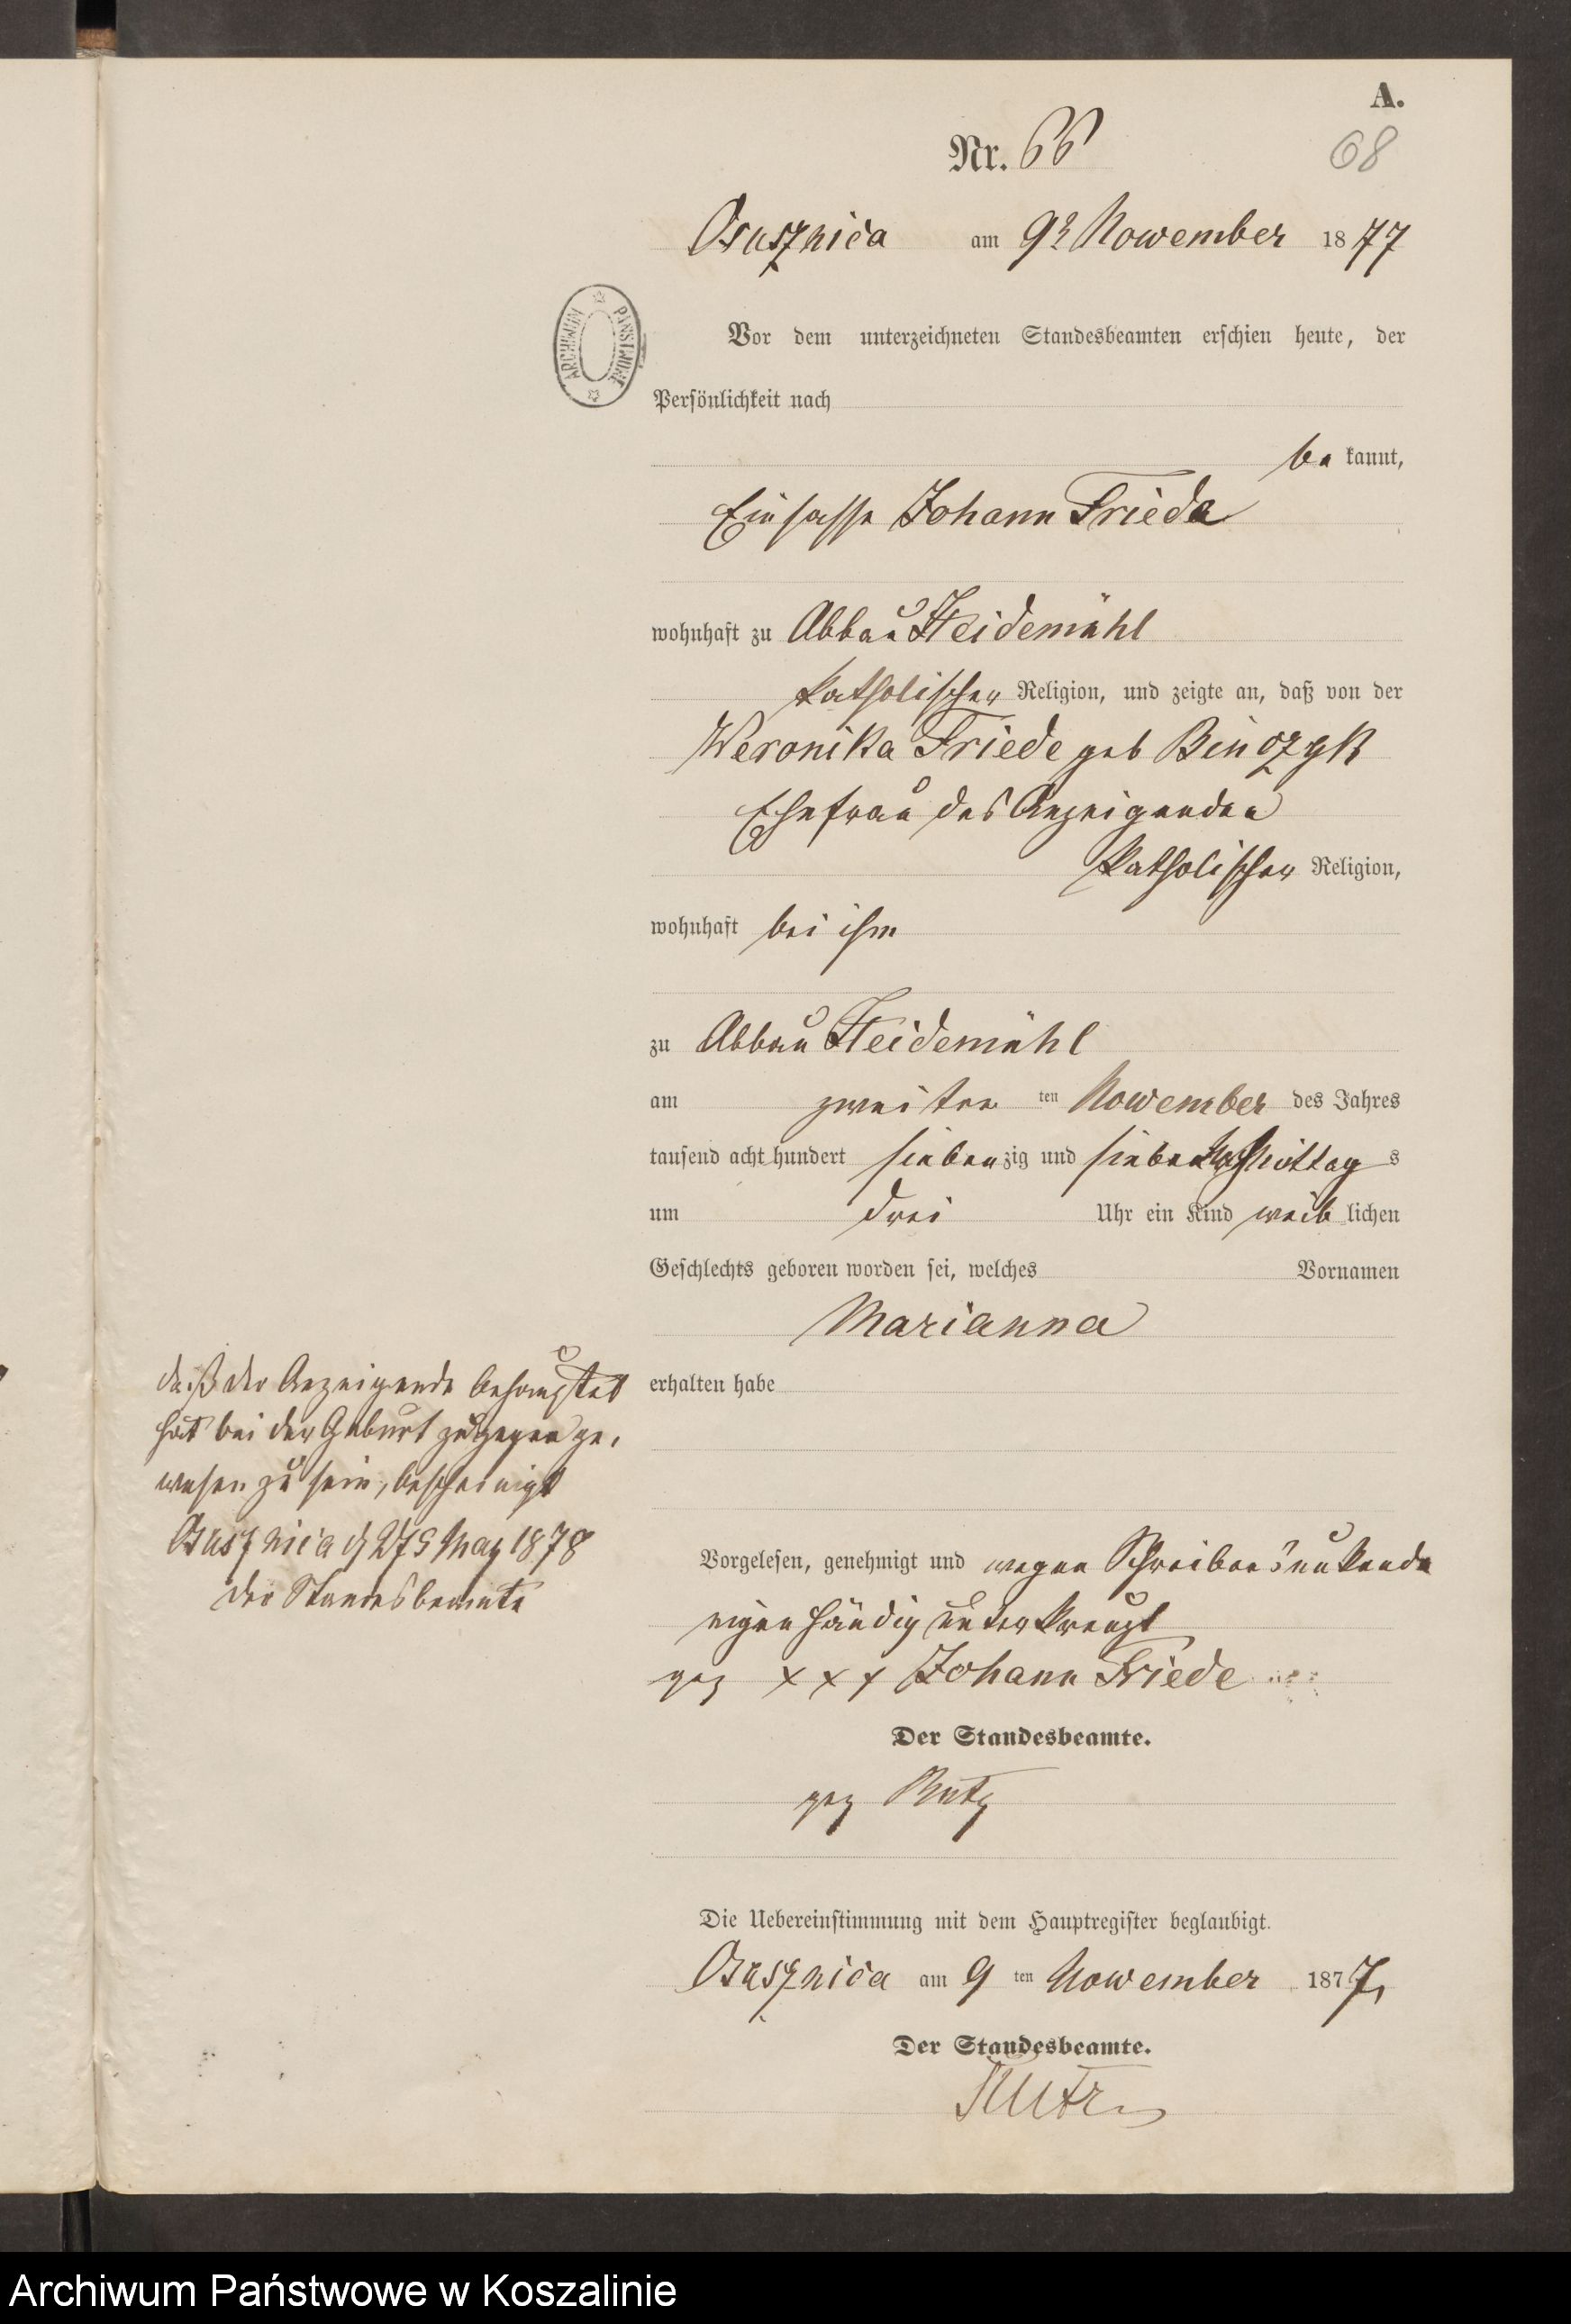 A.
Nr. 66
68
Osusznica am 9t Nowember 1877
ARCHIWUM PAŃSTWOWE
Vor dem unterzeichneten Standesbeamten erschien heute, der
Persönlichkeit nach
be kannt,
Einsasse Johann Friede
wohnhaft zu Abbau Heidemühl
katholischer Religion, und zeigte an, daß von der
Weronika Friede geb
Ehefrau des Anzeigenden
katholischer Religion,
wohnhaft bei ihm
zu Abbau Heidemühl
am zweiten ten Nowember des Jahres
tausend acht hundert sieben zig und sieben Nachmittag s
um drei Uhr ein Kind weib lichen
Geschlechts geboren worden sei, welches Vornamen
Marianna
erhalten habe
daß der Anzeigende behauptet
hat bei der Geburt zugegen ge,
wesen zu sein, bescheinigt
Osusznica d 27t May 1878
der Standesbeamte
Vorgelesen, genehmigt und wegen Schreibensunkunde
eigenhändig unterkreuzt
gez x x x Johann Friede
Der Standesbeamte.
gez
Die Uebereinstimmung mit dem Hauptregister beglaubigt.
Osusznica am 9 ten Nowember 1877,
Der Standesbeamte.
Archiwum Państwowe w Koszalinie